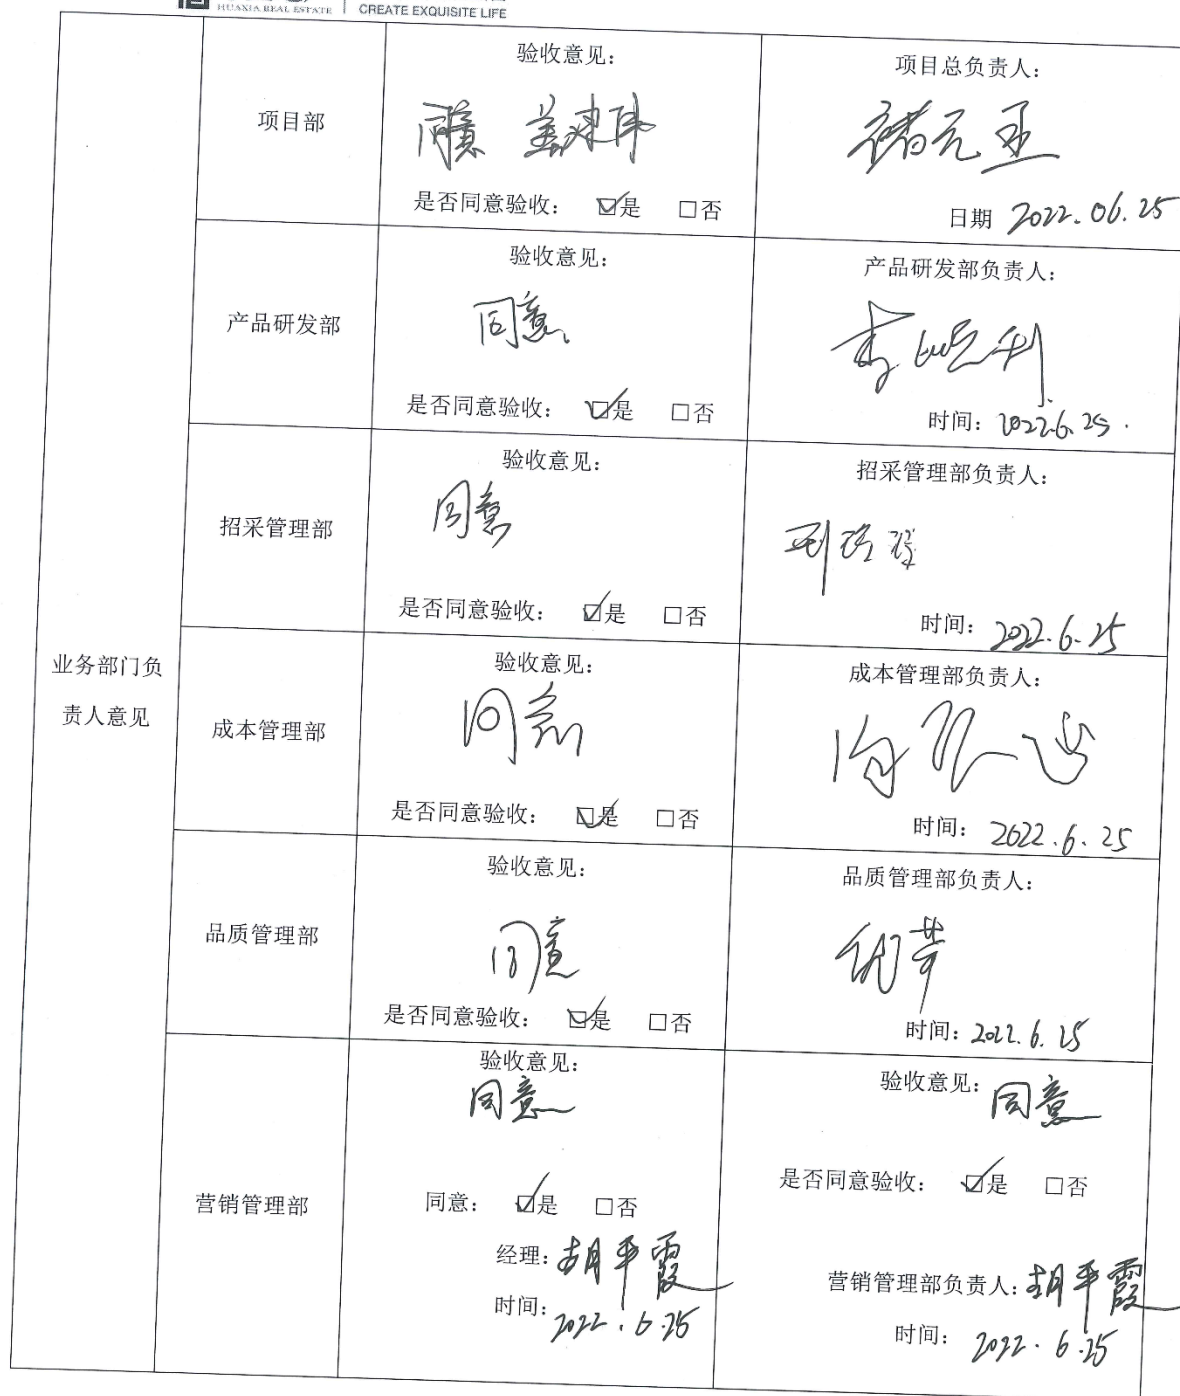 HUAXIA REAL ESTATE
CREATE EXQUISITE LIFE
业务部门负
责人意见
项目部
验收意见：
同意 姜建伟
是否同意验收： ☑是 □否
项目总负责人：
褚元
日期 2022.06.25
产品研发部
验收意见：
同意。
是否同意验收： ☑是 □否
产品研发部负责人：
李
时间：2022.6.25.
招采管理部
验收意见：
同意
是否同意验收： ☑是 □否
招采管理部负责人：
时间：2022.6.25
成本管理部
验收意见：
同意
是否同意验收： ☑是 □否
成本管理部负责人：
时间：2022.6.25
品质管理部
验收意见：
同意
是否同意验收： ☑是 □否
品质管理部负责人：
时间：2022.6.25
营销管理部
验收意见：
同意
同意： ☑是 □否
经理：胡平霞
时间：2022.6.25
验收意见：同意
是否同意验收： ☑是 □否
营销管理部负责人：胡平霞
时间：2022.6.25